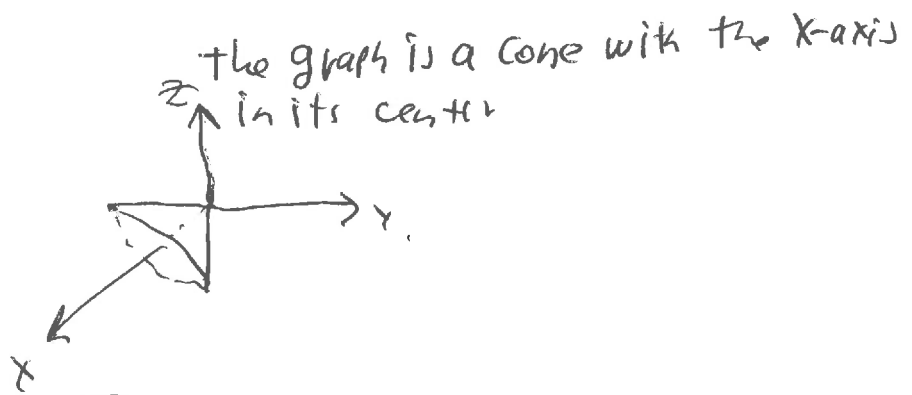 the graph is a cone with the X-axis
Z in its center
Y
X